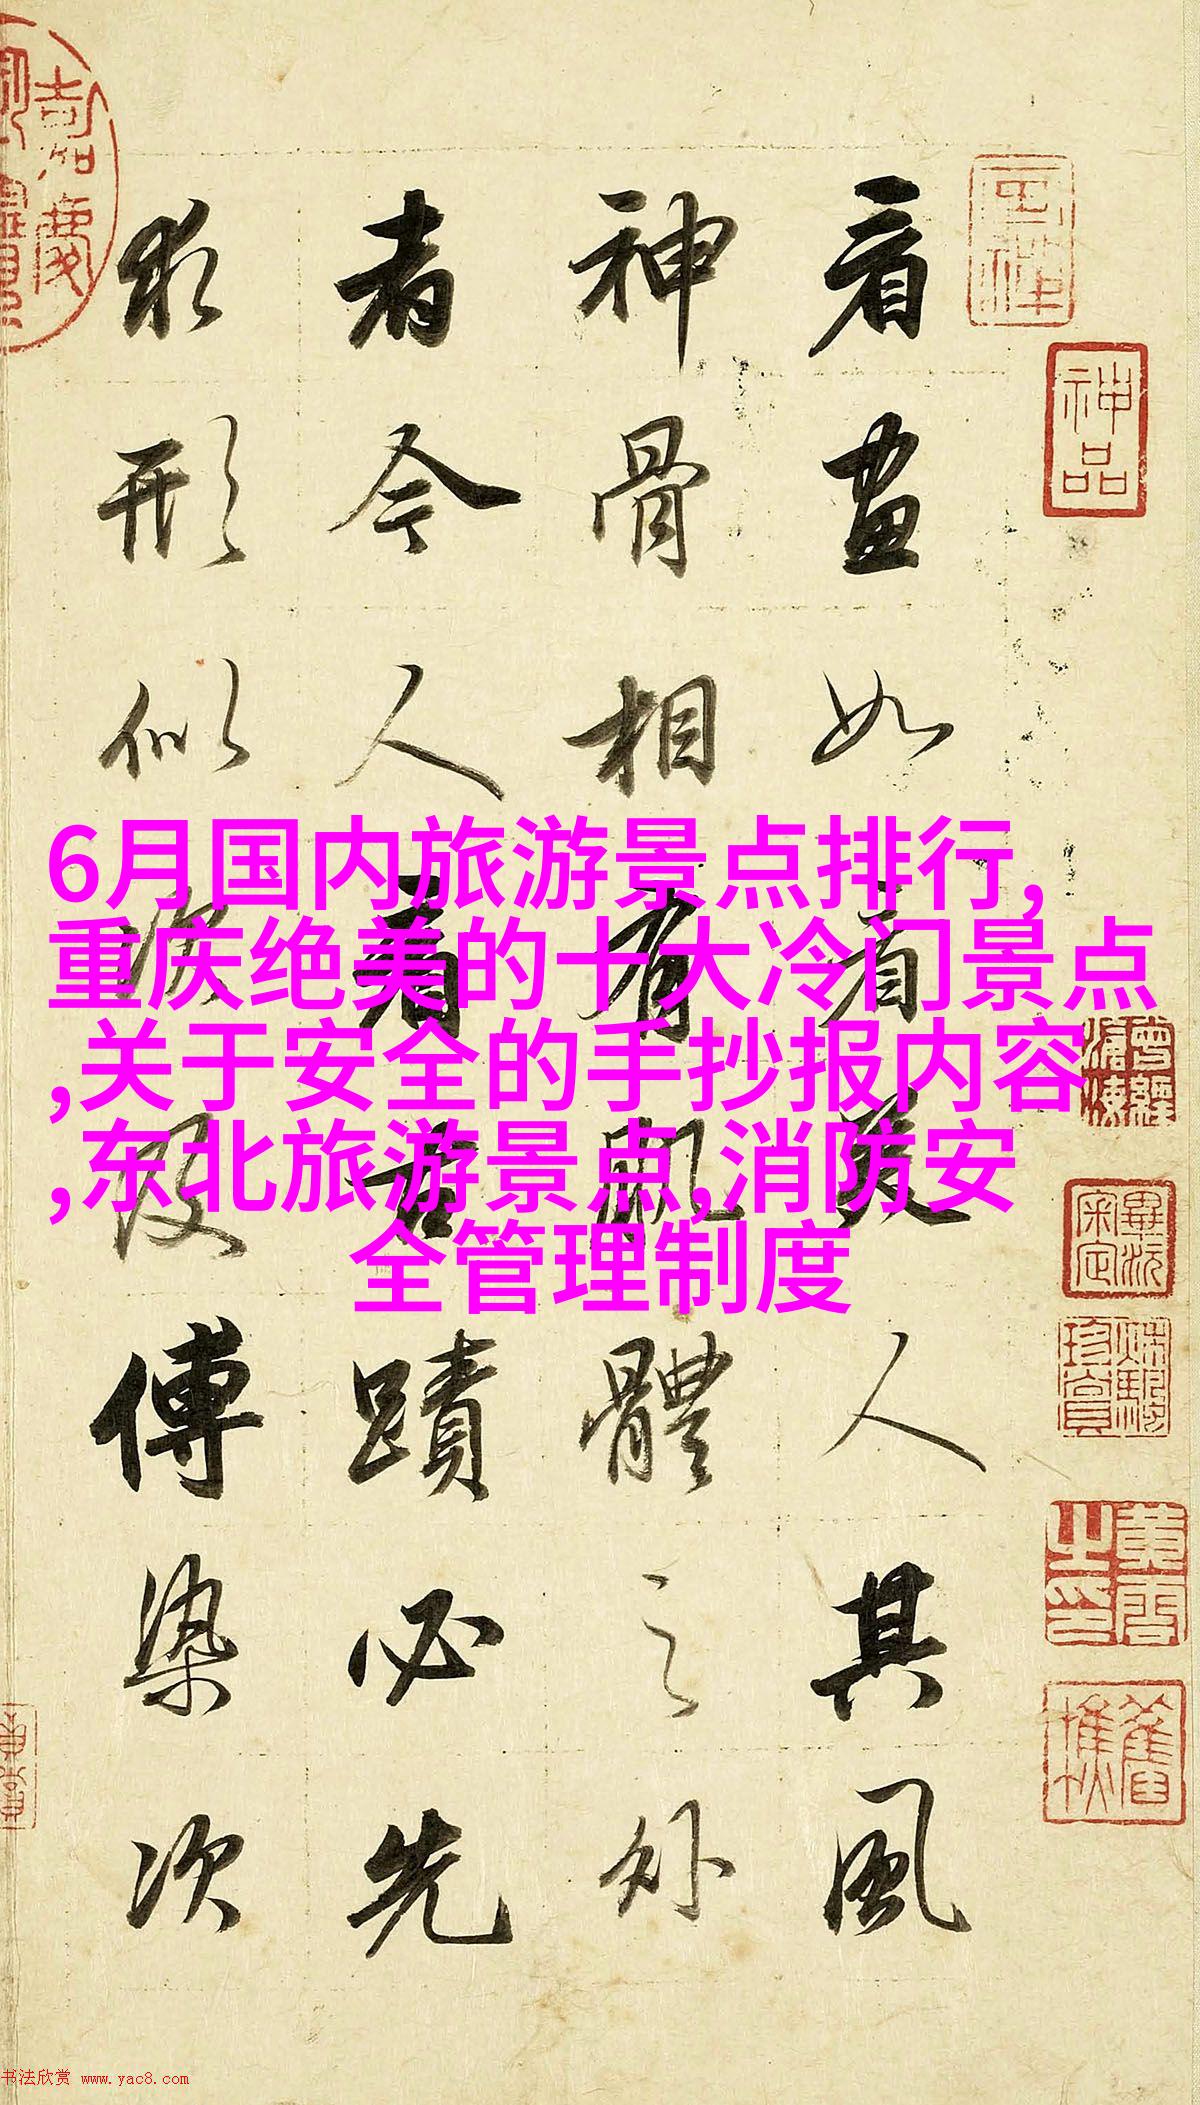 看畫如看美人其風
神骨相有肌體之外
者今人看古蹟必先
求形似次及傅染次
神品
6月国内旅游景点排行,
重庆绝美的十大冷门景点
,关于安全的手抄报内容
,东北旅游景点,消防安
全管理制度
书法欣赏 www.yac8.com